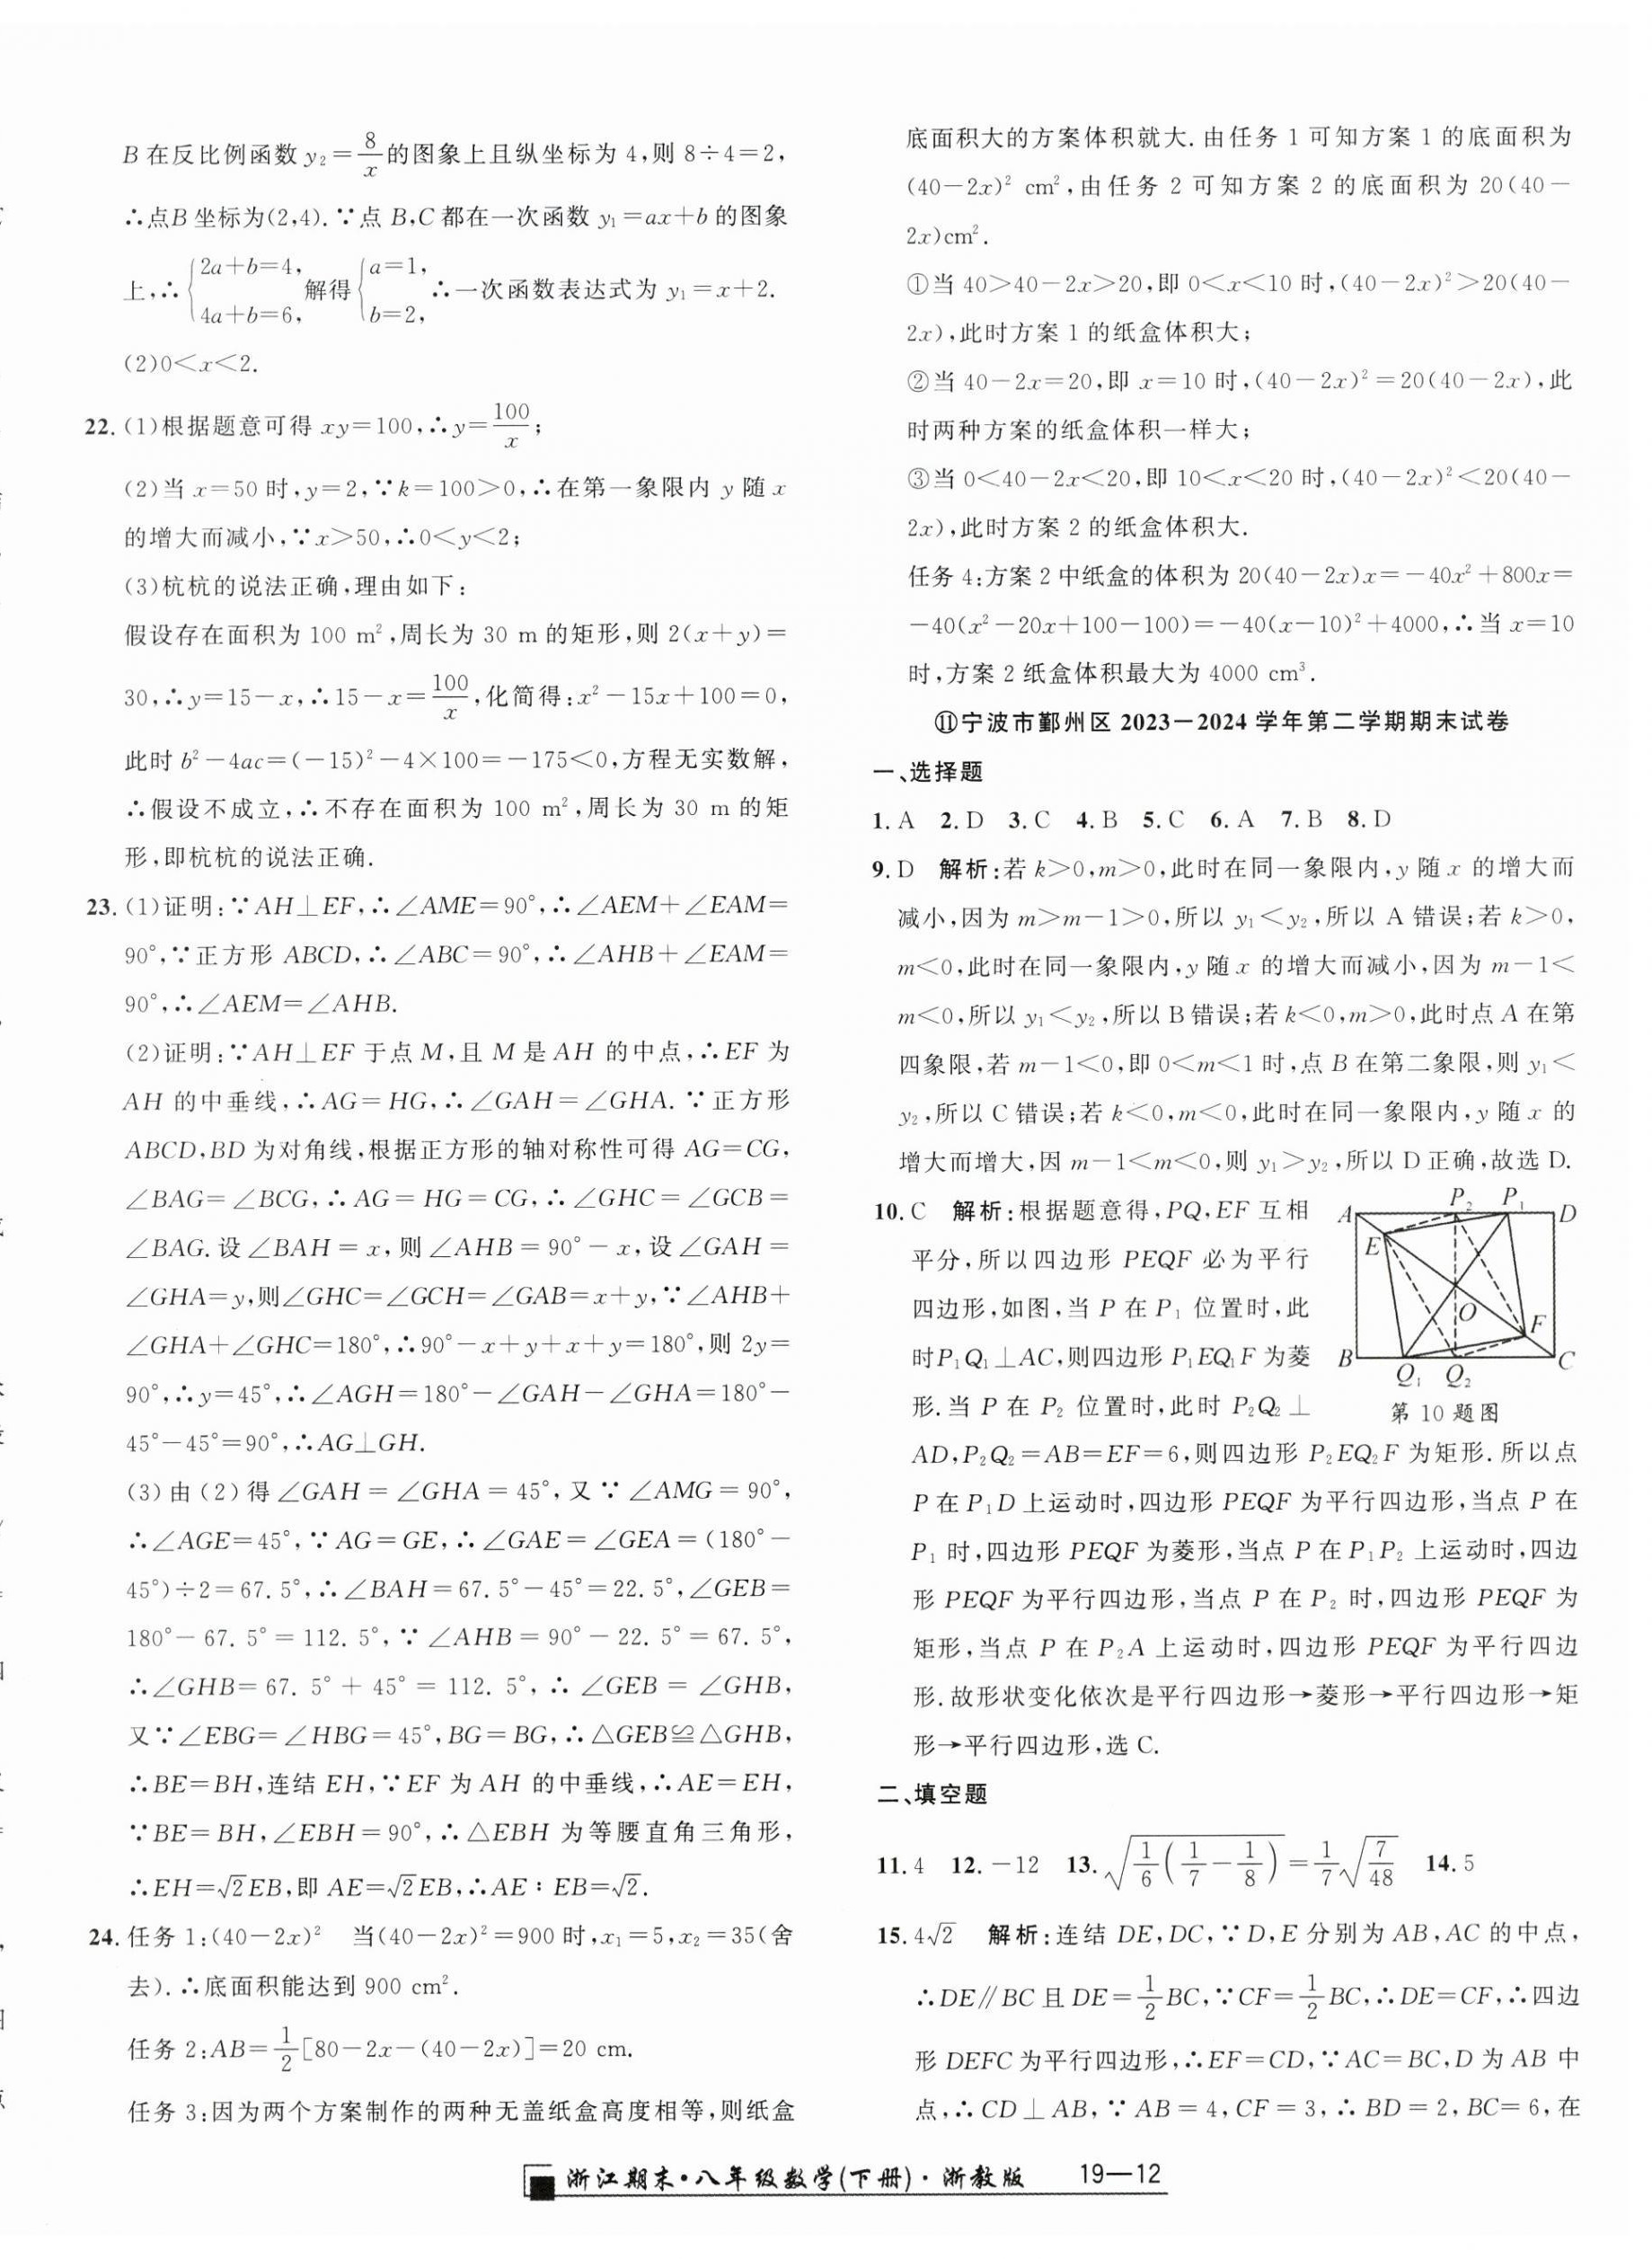 B在反比例函数 y₂=8/x的图象上且纵坐标为 4,则 8÷4=2,
∴点B坐标为(2,4).∵点 B,C都在一次函数 y₁=ax+b的图象
上,∴{2a+b=4, 4a+b=6, 解得{a=1, b=2, ∴一次函数表达式为 y₁=x+2.
(2)0<x<2.
22.(1)根据题意可得 xy=100,∴y=100/x;
(2)当 x=50 时,y=2,∵k=100>0,∴在第一象限内 y 随 x
的增大而减小,∵x>50,∴0<y<2;
(3)杭杭的说法正确,理由如下:
假设存在面积为 100 m²,周长为 30 m 的矩形,则 2(x+y)=
30,∴y=15-x,∴15-x=100/x,化简得:x²-15x+100=0,
此时 b²-4ac=(-15)²-4×100=-175<0,方程无实数解,
∴假设不成立,∴不存在面积为 100 m²,周长为 30 m 的矩
形,即杭杭的说法正确.
23.(1)证明:∵AH⊥EF,∴∠AME=90°,∴∠AEM+∠EAM=
90°,∵正方形 ABCD,∴∠ABC=90°,∴∠AHB+∠EAM=
90°,∴∠AEM=∠AHB.
(2)证明:∵AH⊥EF 于点 M,且 M 是 AH 的中点,∴EF 为
AH 的中垂线,∴AG=HG,∴∠GAH=∠GHA.∵正方形
ABCD,BD 为对角线,根据正方形的轴对称性可得 AG=CG,
∠BAG=∠BCG,∴AG=HG=CG,∴∠GHC=∠GCB=
∠BAG.设∠BAH=x,则∠AHB=90°-x,设∠GAH=
∠GHA=y,则∠GHC=∠GCH=∠GAB=x+y,∵∠AHB+
∠GHA+∠GHC=180°,∴90°-x+y+x+y=180°,则 2y=
90°,∴y=45°,∴∠AGH=180°-∠GAH-∠GHA=180°-
45°-45°=90°,∴AG⊥GH.
(3)由(2)得∠GAH=∠GHA=45°,又∵∠AMG=90°,
∴∠AGE=45°,∵AG=GE,∴∠GAE=∠GEA=(180°-
45°)÷2=67.5°,∴∠BAH=67.5°-45°=22.5°,∠GEB=
180°-67.5°=112.5°,∵∠AHB=90°-22.5°=67.5°,
∴∠GHB=67.5°+45°=112.5°,∴∠GEB=∠GHB,
又∵∠EBG=∠HBG=45°,BG=BG,∴△GEB≌△GHB,
∴BE=BH,连结 EH,∵EF 为 AH 的中垂线,∴AE=EH,
∵BE=BH,∠EBH=90°,∴△EBH 为等腰直角三角形,
∴EH=√2EB,即 AE=√2EB,∴AE:EB=√2.
24.任务 1:(40-2x)² 当(40-2x)²=900时,x₁=5,x₂=35(舍
去).∴底面积能达到 900 cm².
任务 2:AB=1/2[80-2x-(40-2x)]=20 cm.
任务 3:因为两个方案制作的两种无盖纸盒高度相等,则纸盒
底面积大的方案体积就大.由任务 1 可知方案 1 的底面积为
(40-2x)² cm²,由任务 2 可知方案 2 的底面积为 20(40-
2x)cm².
①当 40>40-2x>20,即 0<x<10 时,(40-2x)²>20(40-
2x),此时方案 1 的纸盒体积大;
②当 40-2x=20,即 x=10 时,(40-2x)²=20(40-2x),此
时两种方案的纸盒体积一样大;
③当 0<40-2x<20,即 10<x<20 时,(40-2x)²<20(40-
2x),此时方案 2 的纸盒体积大.
任务 4:方案 2 中纸盒的体积为 20(40-2x)x=-40x²+800x=
-40(x²-20x+100-100)=-40(x-10)²+4000,∴当 x=10
时,方案 2 纸盒体积最大为 4000 cm³.
⑪宁波市鄞州区 2023—2024 学年第二学期期末试卷
一、选择题
1.A 2.D 3.C 4.B 5.C 6.A 7.B 8.D
9.D 解析:若 k>0,m>0,此时在同一象限内,y 随 x 的增大而
减小,因为 m>m-1>0,所以 y₁<y₂,所以 A 错误;若 k>0,
m<0,此时在同一象限内,y 随 x 的增大而减小,因为 m-1<
m<0,所以 y₁<y₂,所以 B错误;若 k<0,m>0,此时点 A 在第
四象限,若 m-1<0,即 0<m<1 时,点 B 在第二象限,则 y₁<
y₂,所以 C 错误;若 k<0,m<0,此时在同一象限内,y 随 x 的
增大而增大,因 m-1<m<0,则 y₁>y₂,所以 D 正确,故选 D.
10.C 解析:根据题意得,PQ,EF 互相
平分,所以四边形 PEQF 必为平行
四边形,如图,当 P 在 P₁ 位置时,此
时P₁Q₁⊥AC,则四边形 P₁EQ₁F 为菱
形.当 P 在 P₂ 位置时,此时 P₂Q₂⊥
A P₂ P₁ D
E
O
F
B Q₁ Q₂ C
第 10 题图
AD,P₂Q₂=AB=EF=6,则四边形 P₂EQ₂F 为矩形.所以点
P 在 P₁D 上运动时,四边形 PEQF 为平行四边形,当点 P 在
P₁ 时,四边形 PEQF 为菱形,当点 P 在 P₁P₂ 上运动时,四边
形 PEQF 为平行四边形,当点 P 在 P₂ 时,四边形 PEQF 为
矩形,当点 P 在 P₂A 上运动时,四边形 PEQF 为平行四边
形.故形状变化依次是平行四边形→菱形→平行四边形→矩
形→平行四边形,选 C.
二、填空题
11.4 12.-12 13.√(1/6(1/7-1/8))=1/7√(7/48) 14.5
15.4√2 解析:连结 DE,DC,∵D,E 分别为 AB,AC 的中点,
∴DE∥BC 且 DE=1/2BC,∵CF=1/2BC,∴DE=CF,∴四边
形 DEFC 为平行四边形,∴EF=CD,∵AC=BC,D 为 AB 中
点,∴CD⊥AB,∵AB=4,CF=3,∴BD=2,BC=6,在
浙江期末·八年级数学(下册)·浙教版 19—12